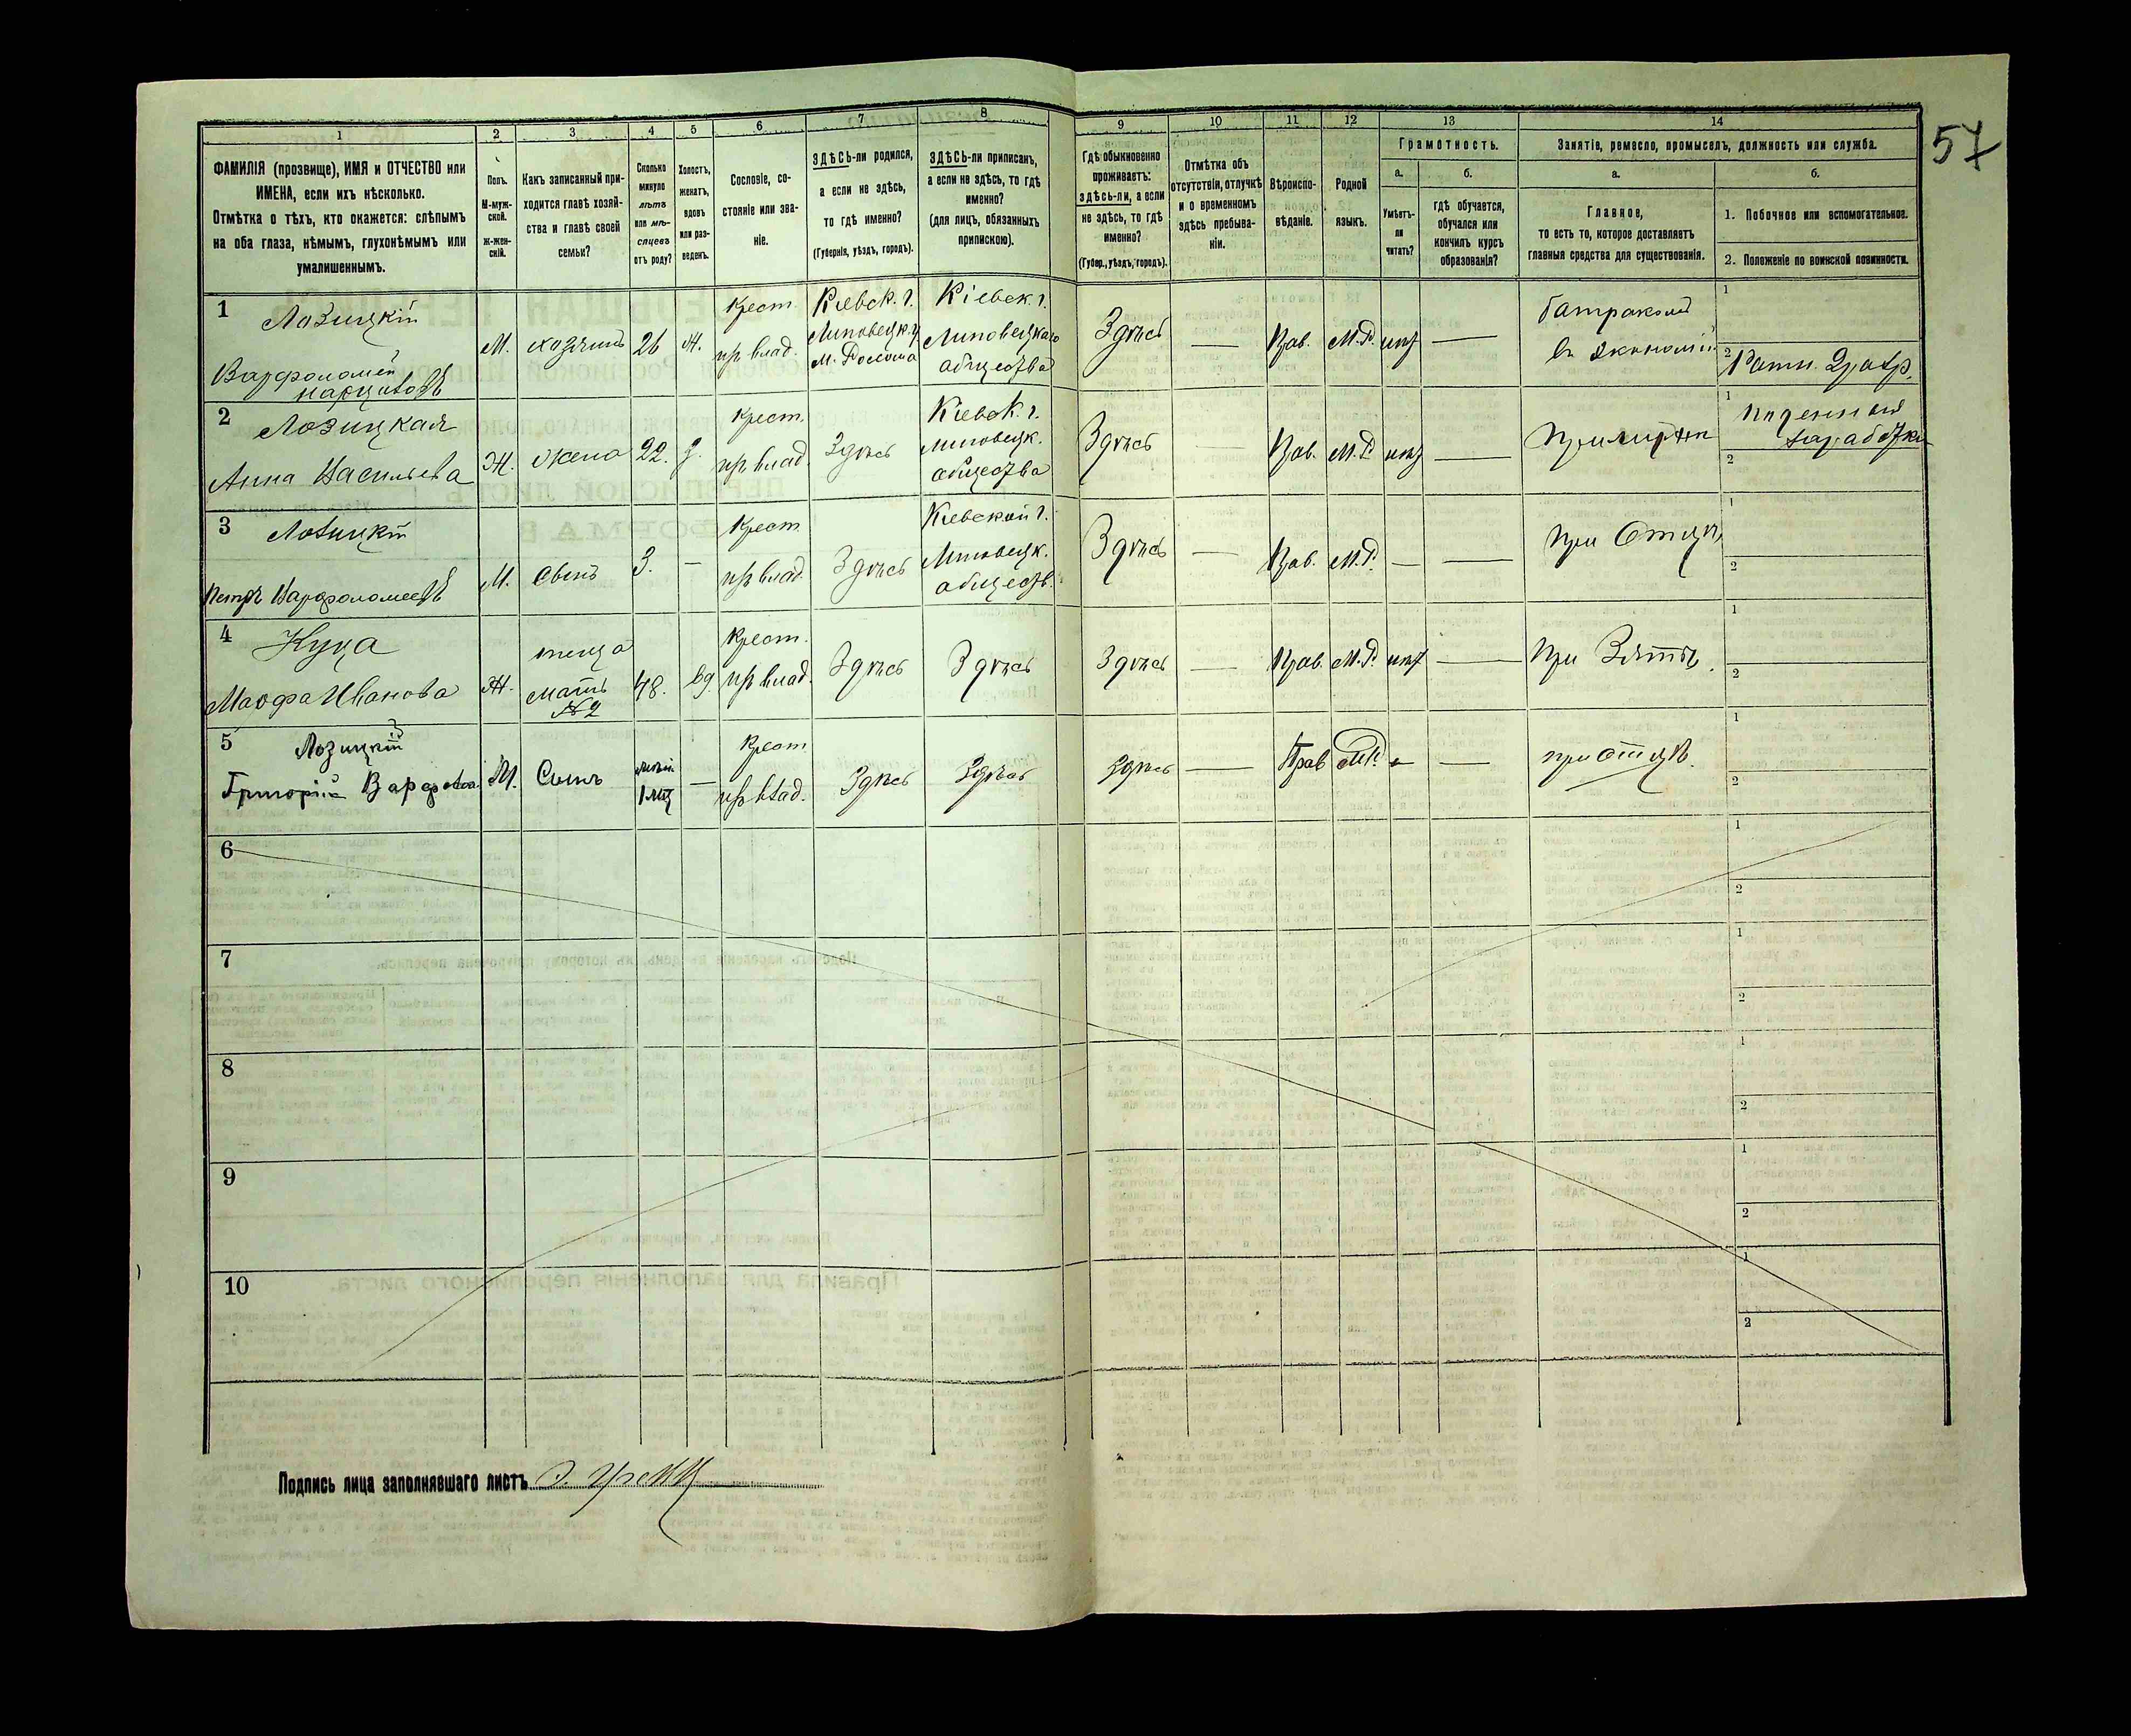 57
1 2 3 4 5 6 7 8 9 10 11 12 13 14
ФАМИЛІЯ (прозвище), ИМЯ и ОТЧЕСТВО или
ИМЕНА, если ихъ нѣсколько.
Отмѣтка о тѣхъ, кто окажется: слѣпымъ
на оба глаза, нѣмымъ, глухонѣмымъ или
умалишеннымъ.
Полъ.
М-муж-
ской.
ж-жен-
скій.
Какъ записанный при-
ходится главѣ хозяй-
ства и главѣ своей
семьи?
Сколько
минуло
лѣтъ
или мѣ-
сяцевъ
отъ роду?
Холостъ,
женатъ,
вдовъ
или раз-
веденъ.
Сословіе, со-
стояніе или зва-
ніе.
ЗДѢСЬ-ли родился,
а если не здѣсь,
то гдѣ именно?
(Губернія, уѣздъ, городъ).
ЗДѢСЬ-ли приписанъ,
а если не здѣсь, то гдѣ
именно?
(для лицъ, обязанныхъ
припискою).
Гдѣ обыкновенно
проживаетъ:
здѣсь-ли, а если
не здѣсь, то гдѣ
именно?
(Губер., уѣздъ, городъ).
Отмѣтка объ
отсутствіи, отлучкѣ
и о временномъ
здѣсь пребыва-
ніи.
Вѣроиспо-
вѣданіе.
Родной
языкъ.
Грамотность.
а.
Умѣетъ-
ли
читать?
б.
гдѣ обучается,
обучался или
кончилъ курсъ
образованія?
Занятіе, ремесло, промыселъ, должность или служба.
а.
Главное,
то есть то, которое доставляетъ
главныя средства для существованія.
б.
1. Побочное или вспомогательное.
2. Положеніе по воинской повинности.
1
Лозицкій
Варфоломей
М.
хозяинъ
26
Ж.
Крест.
пр влад.
Кіевск. г.
Липовецк. у.
м. Россоша
Кіевск. г.
Липовецкаго
общества
Здѣсь
—
Прав.
М.Р.
нѣт
—
батракомъ
въ экономіи
1
2
Ратн. 2 разр.
2
Лозицкая
Анна Васильева
Ж.
жена
22.
З.
Крест.
пр влад.
Здѣсь
Кіевск. г.
Липовецк.
общества
Здѣсь
—
Прав.
М.Р.
нѣт
—
При мужѣ
1
Поденный
заработки
2
3
Лозицкій
Петръ Варфоломеевъ
М.
Сынъ
3.
—
Крест
пр влад.
Здѣсь
Кіевской г.
Липовецк.
обществ.
Здѣсь
—
Прав.
М.Р.
—
—
При Отцѣ
1
2
4
Куца
Марфа Иванова
Ж.
теща
мать
№ 2
48.
вд.
Крест.
пр влад.
Здѣсь
Здѣсь
Здѣсь
—
Прав.
М.Р.
нѣт
—
При Зятѣ.
1
2
5
Лозицкій
Григорій
М.
Сынъ
1 мѣц
—
Крест
пр влад.
Здѣсь
Здѣсь
Здѣсь
—
Прав
М.Р.
—
—
при отцѣ.
1
2
6
1
2
7
1
2
8
1
2
9
1
2
10
1
2
Подпись лица заполнявшаго листъ